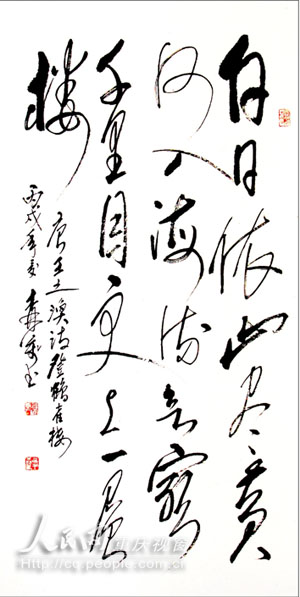 白日依山尽黄
河入海流欲窮
千里目更上一层
楼
唐王之涣诗登鹳雀楼
丙戌年
书
人民网 重庆视窗
http://cq.people.com.cn